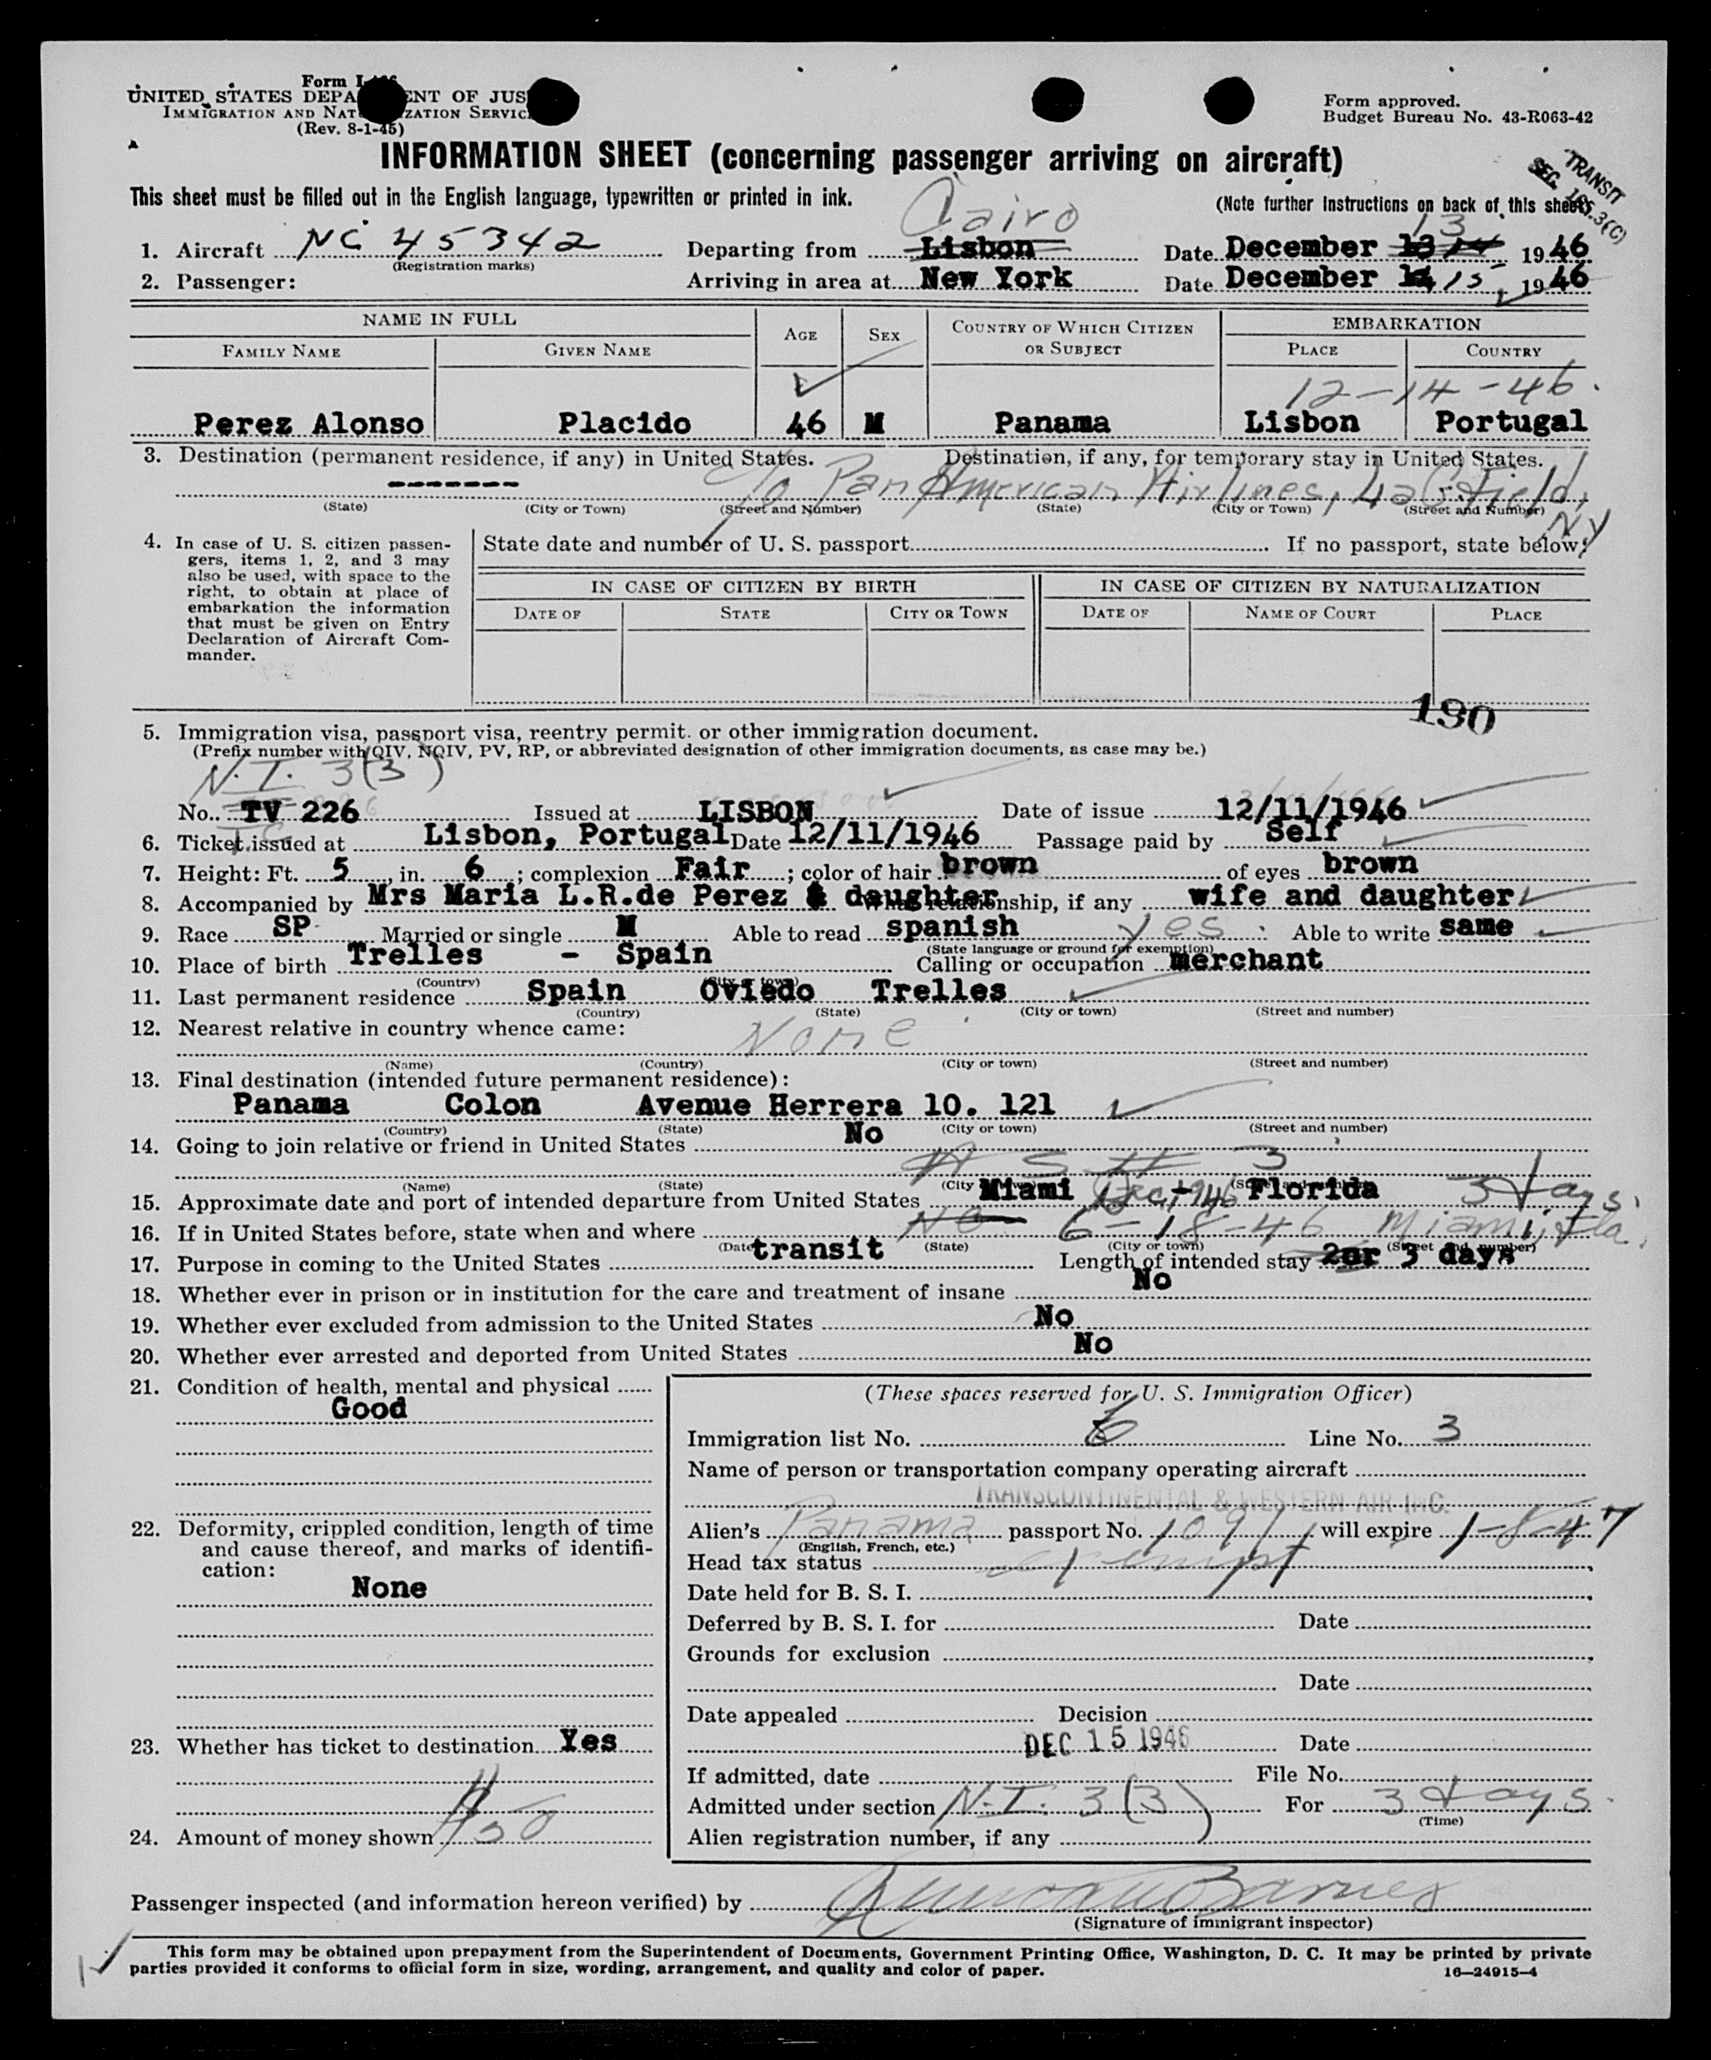 Form I-466
UNITED STATES DEPARTMENT OF JUSTICE
IMMIGRATION AND NATURALIZATION SERVICE
(Rev. 8-1-45)
Form approved.
Budget Bureau No. 43-R063-42
INFORMATION SHEET (concerning passenger arriving on aircraft)
TRANSIT
SEC. 165.3(C)
This sheet must be filled out in the English language, typewritten or printed in ink.
(Note further instructions on back of this sheet)
Cairo 13
1. Aircraft NC 45342 Departing from Lisbon Date December 13 14 1946
(Registration marks)
2. Passenger: Arriving in area at New York Date December 14 15, 1946
NAME IN FULL AGE SEX COUNTRY OF WHICH CITIZEN OR SUBJECT EMBARKATION
FAMILY NAME GIVEN NAME PLACE COUNTRY
12-14-46.
Perez Alonso Placido 46 M Panama Lisbon Portugal
3. Destination (permanent residence, if any) in United States. Destination, if any, for temporary stay in United States.
------- c/o Pan American Airlines, La G. Field, NY
(State) (City or Town) (Street and Number) (State) (City or Town) (Street and Number)
4. In case of U. S. citizen passen-
gers, items 1, 2, and 3 may
also be used, with space to the
right, to obtain at place of
embarkation the information
that must be given on Entry
Declaration of Aircraft Com-
mander.
State date and number of U. S. passport If no passport, state below:
IN CASE OF CITIZEN BY BIRTH IN CASE OF CITIZEN BY NATURALIZATION
DATE OF STATE CITY OR TOWN DATE OF NAME OF COURT PLACE
190
5. Immigration visa, passport visa, reentry permit, or other immigration document.
(Prefix number with QIV, NQIV, PV, RP, or abbreviated designation of other immigration documents, as case may be.)
N.I. 3(3)
No. TV 226 Issued at LISBON Date of issue 12/11/1946
6. Ticket issued at Lisbon, Portugal Date 12/11/1946 Passage paid by Self
7. Height: Ft. 5, in. 6; complexion Fair; color of hair brown of eyes brown
8. Accompanied by Mrs Maria L.R.de Perez & daughter What relationship, if any wife and daughter
9. Race SP Married or single M Able to read spanish yes Able to write same
(State language or ground for exemption)
10. Place of birth Trelles - Spain Calling or occupation merchant
(Country) (City or town)
11. Last permanent residence Spain Oviedo Trelles
(Country) (State) (City or town) (Street and number)
12. Nearest relative in country whence came:
None
(Name) (Country) (City or town) (Street and number)
13. Final destination (intended future permanent residence):
Panama Colon Avenue Herrera 10. 121
(Country) (State) (City or town) (Street and number)
14. Going to join relative or friend in United States No
(Name) (State) (City or town) (Street and number)
15. Approximate date and port of intended departure from United States Miami Dec, 1946 - Florida 3 days.
16. If in United States before, state when and where No 6-18-46 Miami, Fla.
(Date) (State) (City or town) (Street and number)
17. Purpose in coming to the United States transit Length of intended stay 2or 3 days
18. Whether ever in prison or in institution for the care and treatment of insane No
19. Whether ever excluded from admission to the United States No
20. Whether ever arrested and deported from United States No
21. Condition of health, mental and physical
Good
22. Deformity, crippled condition, length of time
and cause thereof, and marks of identifi-
cation:
None
23. Whether has ticket to destination Yes
24. Amount of money shown $50
(These spaces reserved for U. S. Immigration Officer)
Immigration list No. 6 Line No. 3
Name of person or transportation company operating aircraft
TRANSCONTINENTAL & WESTERN AIR INC.
Alien's Panama passport No. 1091 will expire 1-8-47
(English, French, etc.)
Head tax status exempt
Date held for B. S. I.
Deferred by B. S. I. for Date
Grounds for exclusion
Date
Date appealed Decision
DEC 15 1946 Date
If admitted, date File No.
Admitted under section N.I. 3(3) For 3 days.
(Time)
Alien registration number, if any
Passenger inspected (and information hereon verified) by Barnes
(Signature of immigrant inspector)
This form may be obtained upon prepayment from the Superintendent of Documents, Government Printing Office, Washington, D. C. It may be printed by private
parties provided it conforms to official form in size, wording, arrangement, and quality and color of paper.
16—24915-4